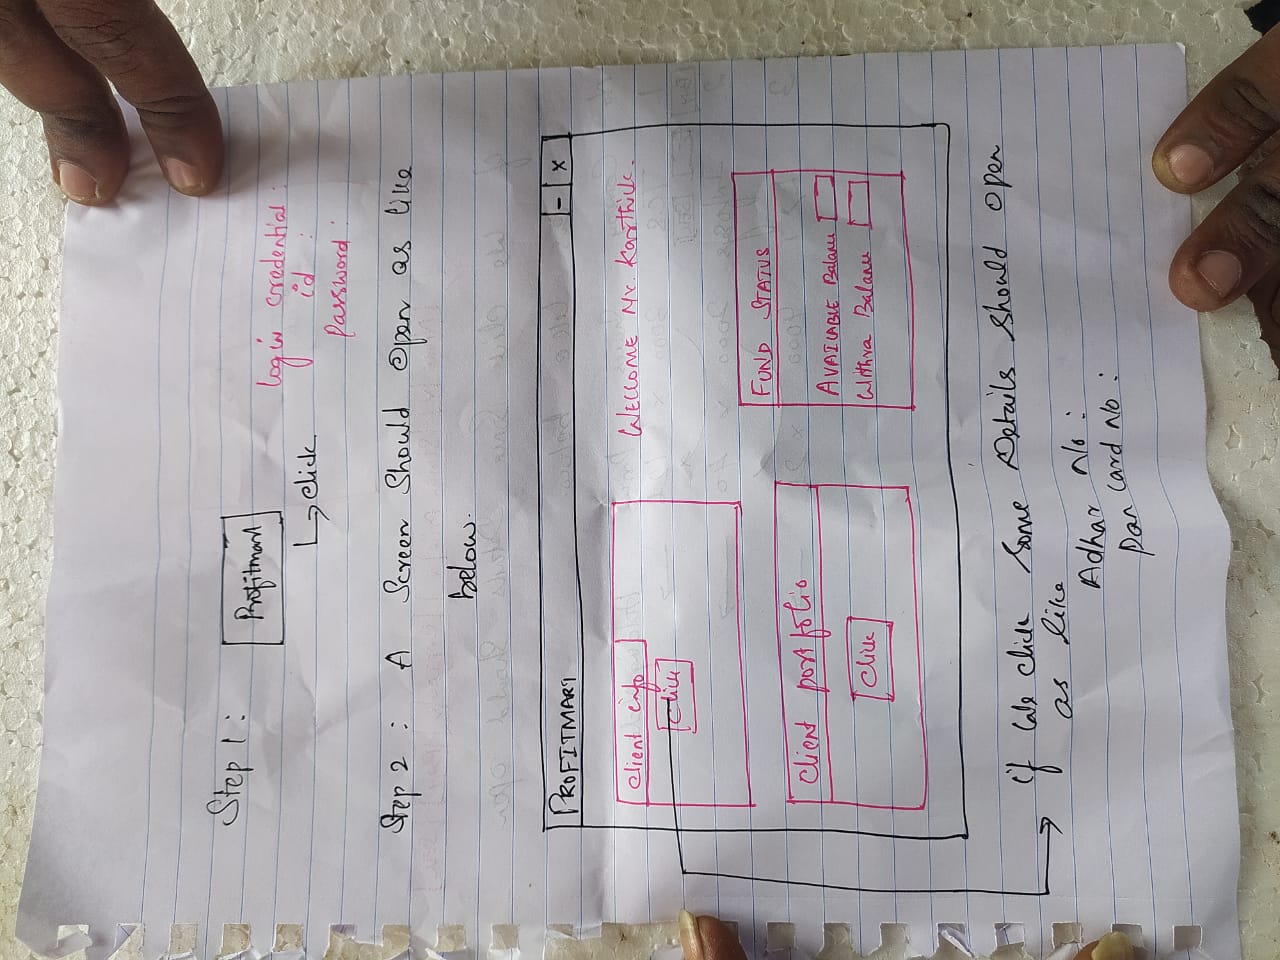 Step 1 :
Profitmart
click
login credential :
id :
Password :
Step 2 : A Screen Should Open as like
below.
PROFITMART
- x
WELCOME Mr. Karthik.
Client info
Click
FUND STATUS
AVAILABLE Balance
Withra Balance
Client portfolio
Click
if we click Some Details should open
as like
Adhar No :
Pan card No :